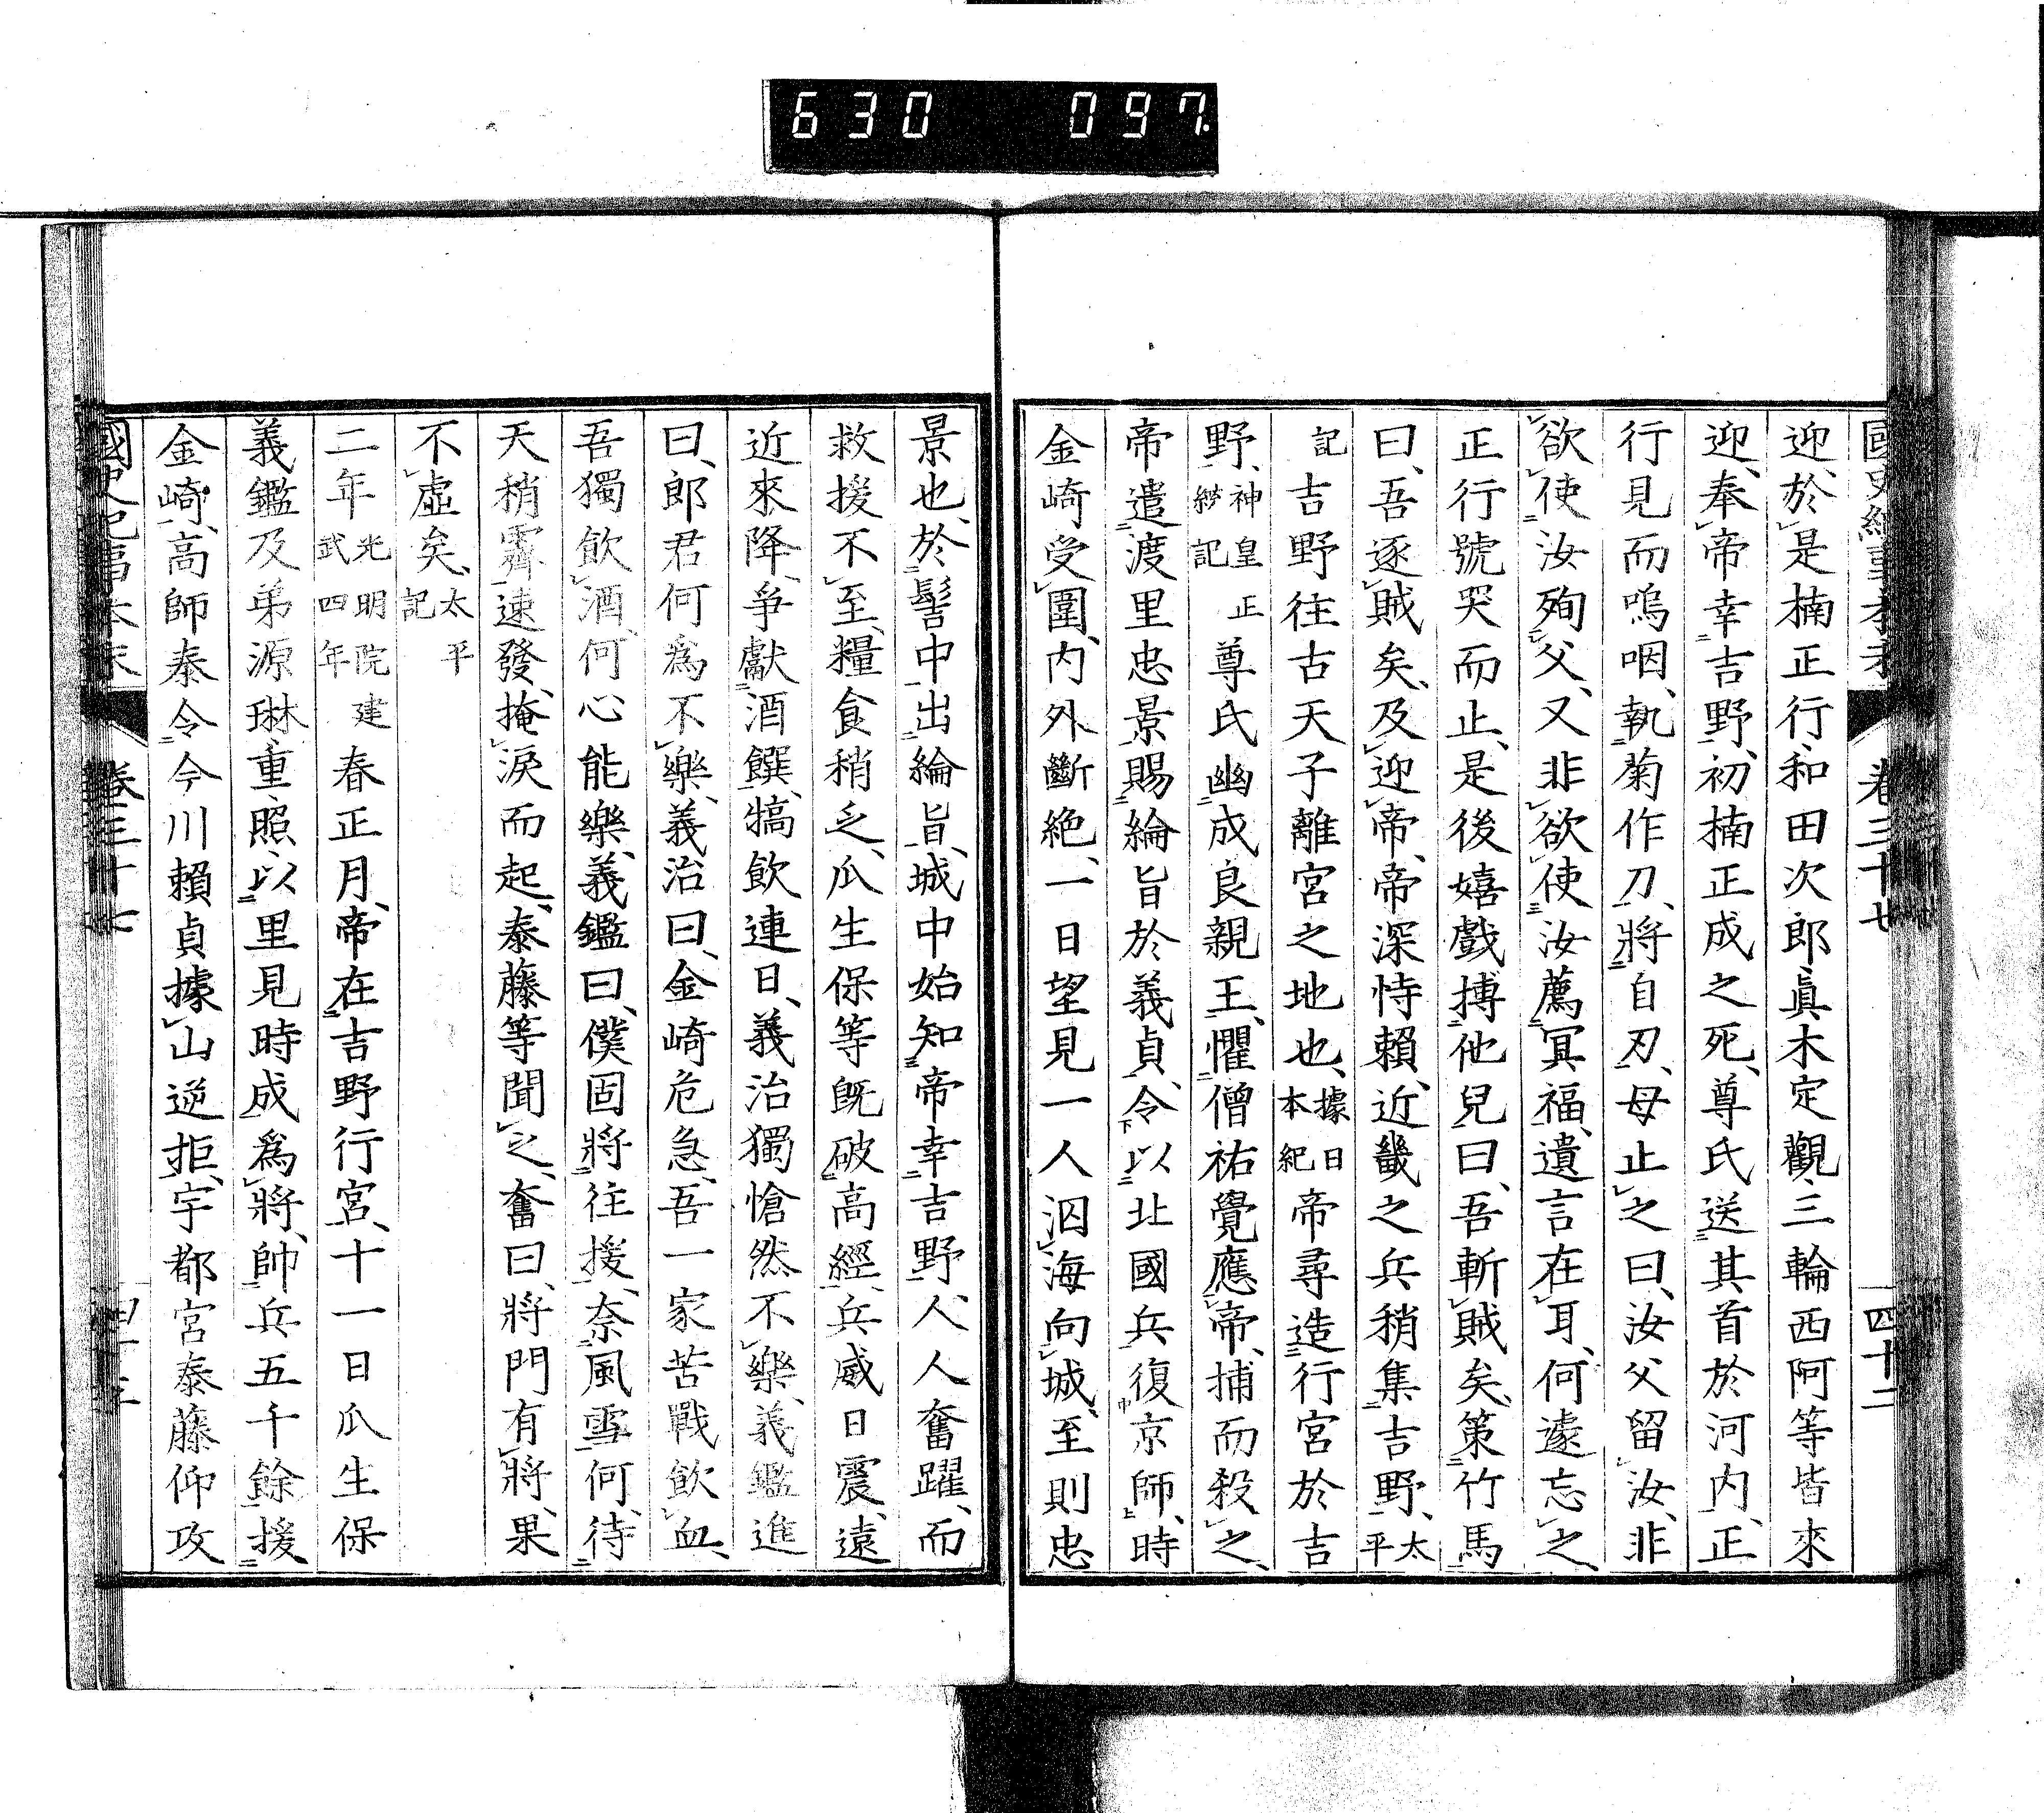 630 097
卷三十七
四十二
迎、於是楠正行、和田次郎、眞木定觀、三輪西阿等皆來
迎、奉帝幸吉野、初楠正成之死、尊氏送其首於河内、正
行見而嗚咽、執菊作刀、將自刃、母止之曰、汝父留汝、非
欲使汝殉父、又非欲使汝薦冥福、遺言在耳、何遽忘之、
正行號哭而止、是後嬉戲、搏他兒曰、吾斬賊矣、策竹馬
曰、吾逐賊矣、及迎帝、帝深恃賴、近畿之兵稍集吉野、太平
記吉野往古天子離宮之地也、據日本紀帝尋造行宮於吉
野、神皇正紗記尊氏幽成良親王、懼僧祐覺應帝、捕而殺之、
帝遣渡里忠景賜綸旨於義貞、令以北國兵復京師、時
金崎受圍、内外斷絶、一日望見一人泅海向城、至則忠
景也、於髻中出綸旨、城中始知帝幸吉野、人人奮躍、而
救援不至、糧食稍乏、瓜生保等既破高經、兵威日震、遠
近來降、爭獻酒饌、犒飲連日、義治獨愴然不樂、義鑑進
曰、郎君何爲不樂、義治曰、金崎危急、吾一家苦戰飲血、
吾獨飲酒、何心能樂、義鑑曰、僕固將往援、奈風雪何、待
天稍霽速發、掩淚而起、泰藤等聞之、奮曰、將門有將、果
不虛矣、太平記
二年光明院建武四年春正月、帝在吉野行宮、十一日瓜生保
義鑑及弟源琳、重、照、以里見時成爲將、帥兵五千餘援
金崎、高師泰令今川賴貞據山逆拒、宇都宮泰藤仰攻
國史紀事本末
卷三十七